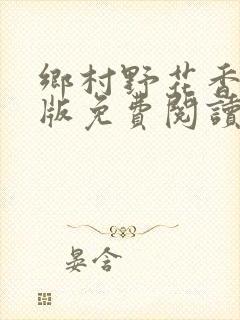 鄉村野花香
版免費閱讀
晏含